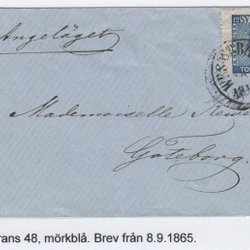 Angeläget
Mademoiselle
Göteborg.
rans 48, mörkblå. Brev från 8.9.1865.